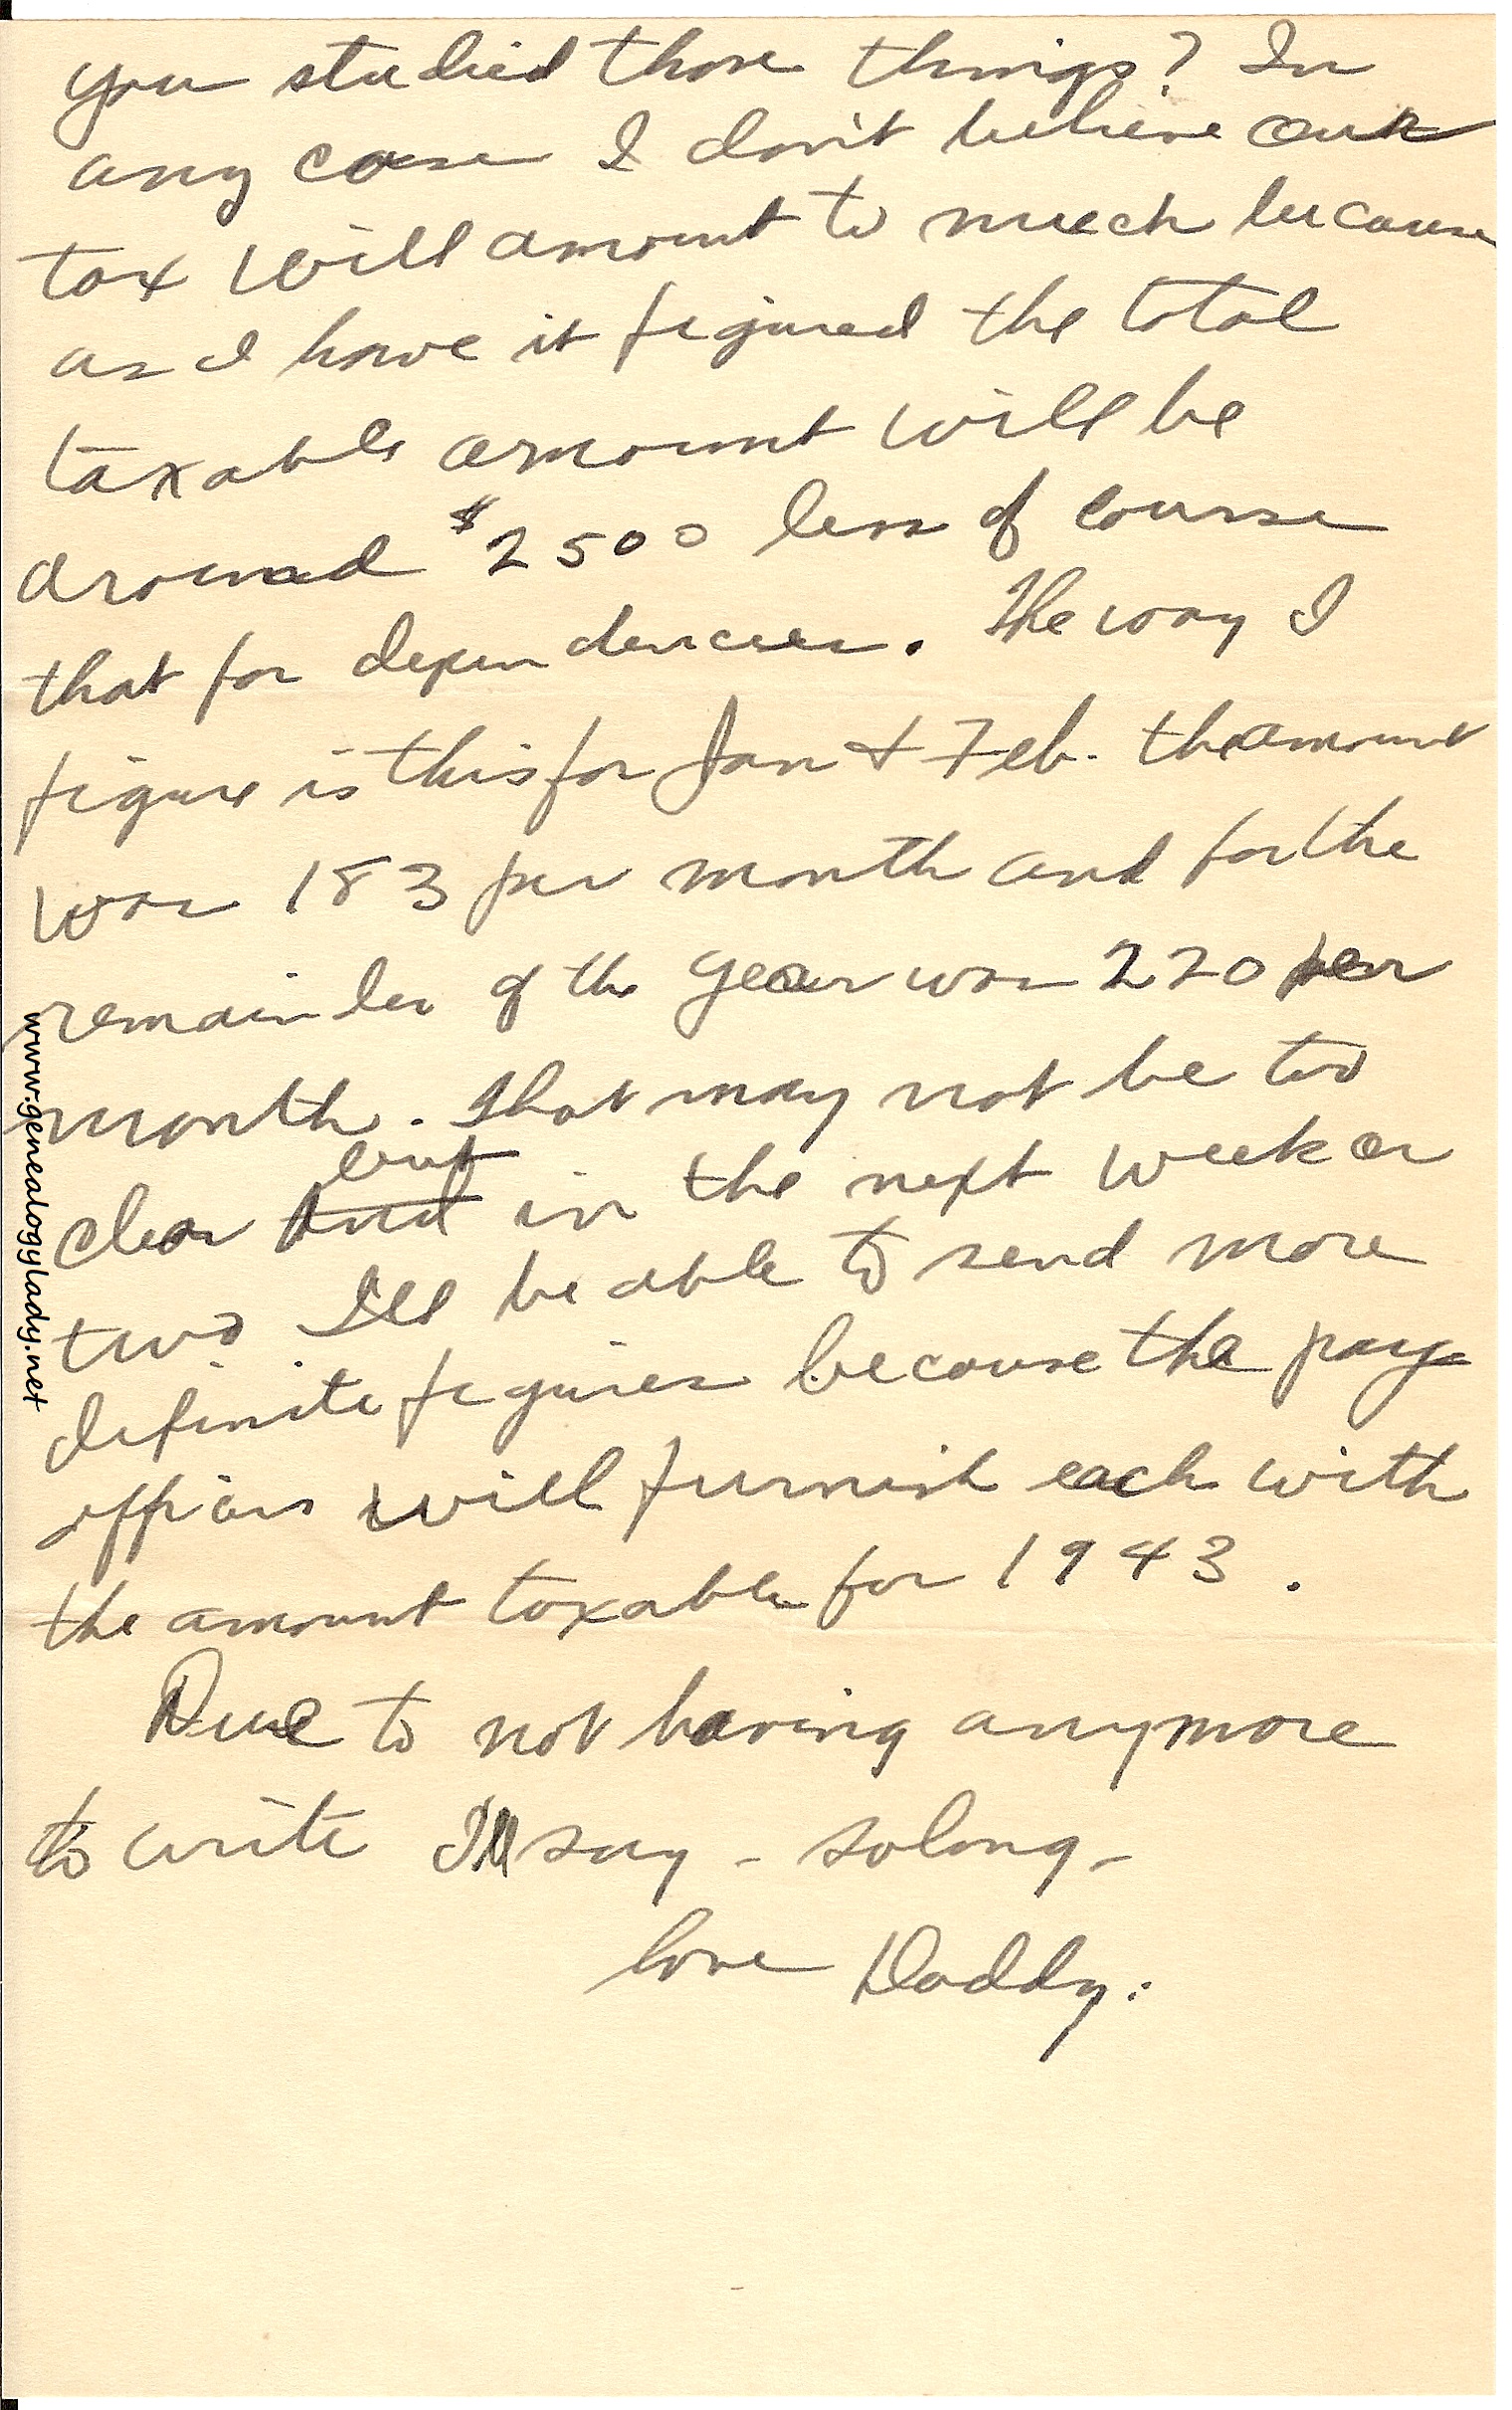 you studied those things? In
any case I don't believe our
tax will amount to much because
as I have it figured the total
taxable amount will be
around $2500 less of course
that for dependencies. The way I
figure is this for Jan & Feb. the amount
was 183 per month and for the
remainder of the year was 220 per
month. That may not be too
clear and but in the next week or
two I'll be able to send more
definite figures because the pay
officers will furnish each with
the amount taxable for 1943.
Due to not having anymore
to write I'll say - solong -
love Daddy.
www.genealogylady.net